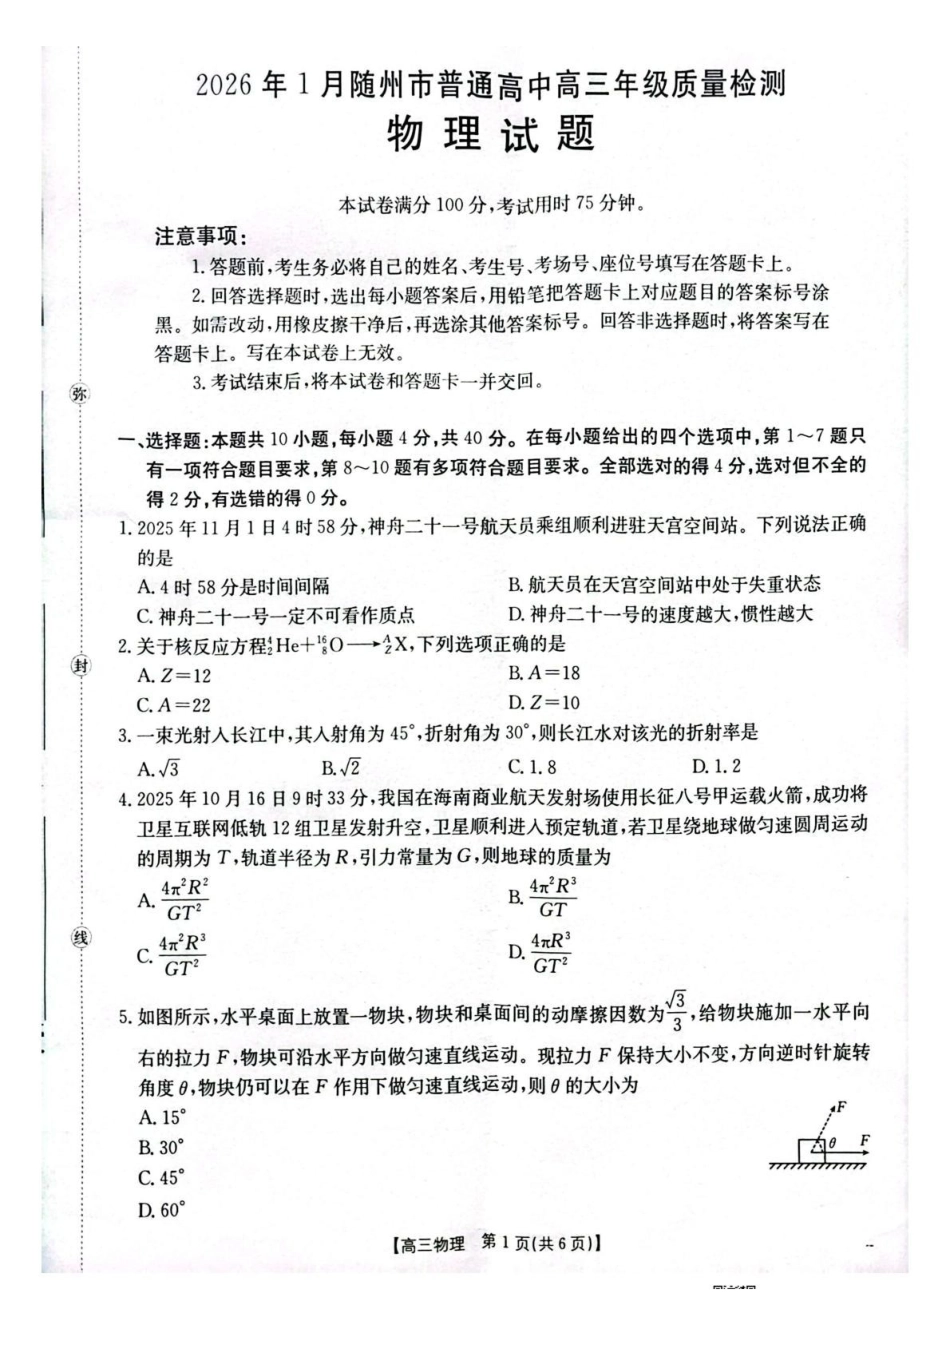 2026 年 1 月随州市普通高中高三年级质量检测
物 理 试 题
本试卷满分 100 分,考试用时 75 分钟。
注意事项:
1. 答题前,考生务必将自己的姓名、考生号、考场号、座位号填写在答题卡上。
2. 回答选择题时,选出每小题答案后,用铅笔把答题卡上对应题目的答案标号涂
黑。如需改动,用橡皮擦干净后,再选涂其他答案标号。回答非选择题时,将答案写在
答题卡上。写在本试卷上无效。
3. 考试结束后,将本试卷和答题卡一并交回。
弥
封
线
一、选择题:本题共 10 小题,每小题 4 分,共 40 分。在每小题给出的四个选项中,第 1~7 题只
有一项符合题目要求,第 8~10 题有多项符合题目要求。全部选对的得 4 分,选对但不全的
得 2 分,有选错的得 0 分。
1. 2025 年 11 月 1 日 4 时 58 分,神舟二十一号航天员乘组顺利进驻天宫空间站。下列说法正确
的是
A. 4 时 58 分是时间间隔 B. 航天员在天宫空间站中处于失重状态
C. 神舟二十一号一定不可看作质点 D. 神舟二十一号的速度越大,惯性越大
2. 关于核反应方程⁴₂He+¹⁶₈O⟶ᴬ_ZX,下列选项正确的是
A. Z=12 B. A=18
C. A=22 D. Z=10
3. 一束光射入长江中,其入射角为 45°,折射角为 30°,则长江水对该光的折射率是
A. √3 B. √2 C. 1.8 D. 1.2
4. 2025 年 10 月 16 日 9 时 33 分,我国在海南商业航天发射场使用长征八号甲运载火箭,成功将
卫星互联网低轨 12 组卫星发射升空,卫星顺利进入预定轨道,若卫星绕地球做匀速圆周运动
的周期为 T,轨道半径为 R,引力常量为 G,则地球的质量为
A. 4π²R²/GT² B. 4π²R³/GT
C. 4π²R³/GT² D. 4πR³/GT²
5. 如图所示,水平桌面上放置一物块,物块和桌面间的动摩擦因数为√3/3,给物块施加一水平向
右的拉力 F,物块可沿水平方向做匀速直线运动。现拉力 F 保持大小不变,方向逆时针旋转
角度 θ,物块仍可以在 F 作用下做匀速直线运动,则 θ 的大小为
A. 15°
B. 30°
C. 45°
D. 60°
F
θ F
【高三物理 第 1 页(共 6 页)】